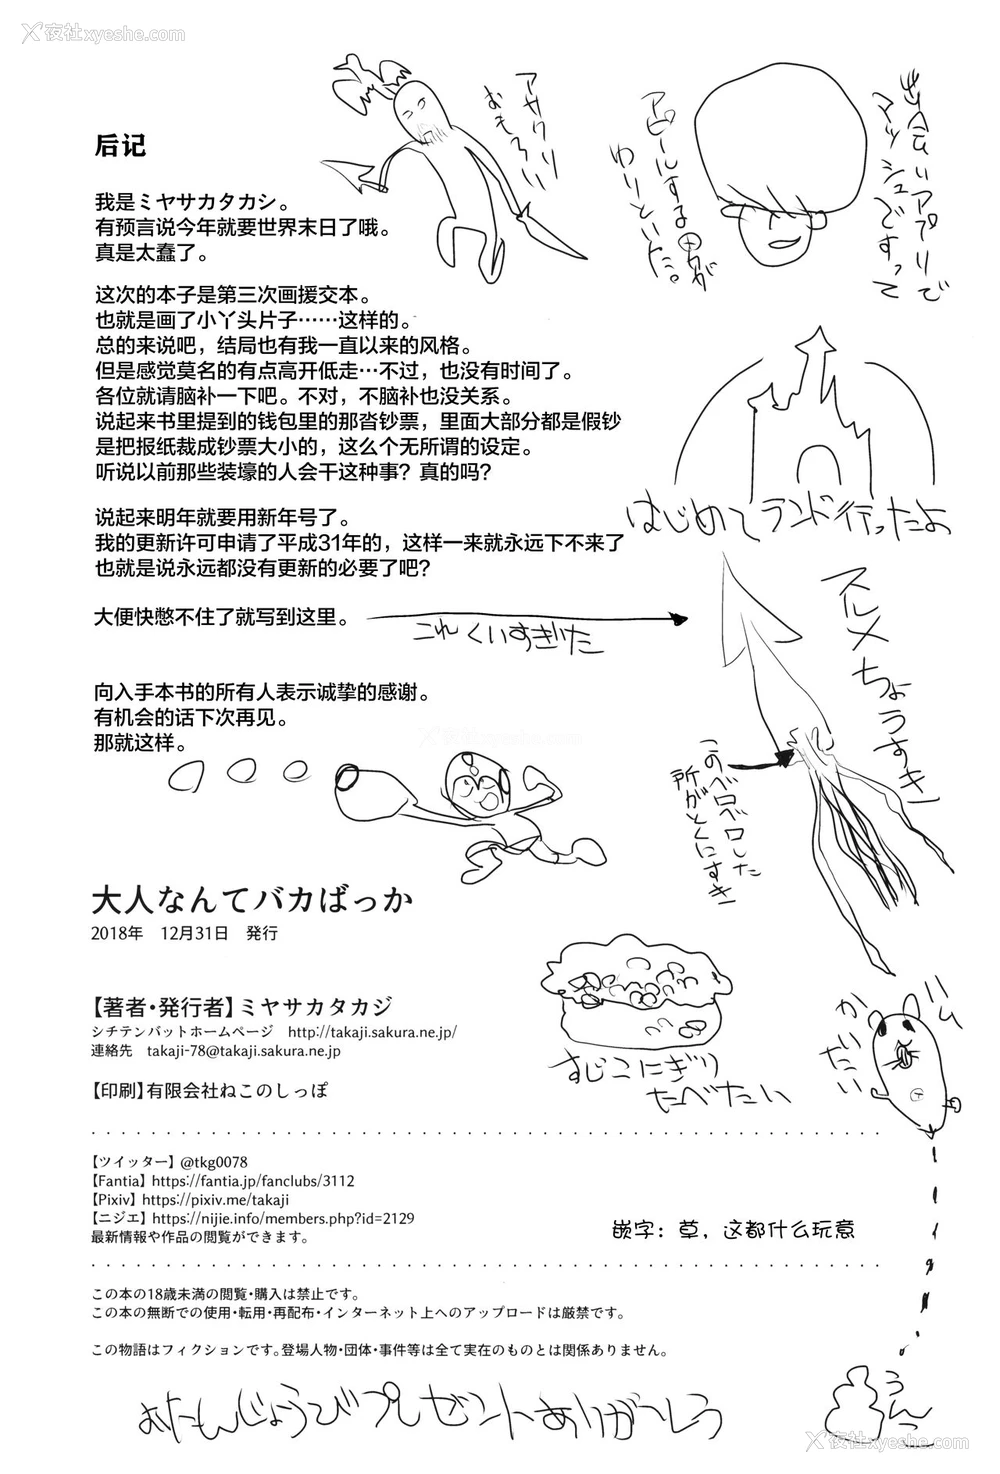 夜社xyeshe.com
后记
我是ミヤサカタカシ。
有预言说今年就要世界末日了哦。
真是太蠢了。
这次的本子是第三次画援交本。
也就是画了小丫头片子……这样的。
总的来说吧，结局也有我一直以来的风格。
但是感觉莫名的有点高开低走…不过，也没有时间了。
各位就请脑补一下吧。不对，不脑补也没关系。
说起来书里提到的钱包里的那沓钞票，里面大部分都是假钞
是把报纸裁成钞票大小的，这么个无所谓的设定。
听说以前那些装壕的人会干这种事？真的吗？
说起来明年就要用新年号了。
我的更新许可申请了平成31年的，这样一来就永远下不来了
也就是说永远都没有更新的必要了吧？
大便快憋不住了就写到这里。
向入手本书的所有人表示诚挚的感谢。
有机会的话下次再见。
那就这样。
アサクリ
おもろい
出会いアプリで
マッシュですって
アピールする男が
ゆりといた。
はじめてランド行ったよ
これくいすぎた
スルメちょうすき
このベロベロした
所がとくにすき
すじこにぎり
たべたい
ハム
かいたい
大人なんてバカばっか
2018年　12月31日　発行
【著者・発行者】ミヤサカタカジ
シチテンバットホームページ　http://takaji.sakura.ne.jp/
連絡先　takaji-78@takaji.sakura.ne.jp
【印刷】有限会社ねこのしっぽ
【ツイッター】@tkg0078
【Fantia】https://fantia.jp/fanclubs/3112
【Pixiv】https://pixiv.me/takaji
【ニジエ】https://nijie.info/members.php?id=2129
最新情報や作品の閲覧ができます。
嵌字：草，这都什么玩意
この本の18歳未満の閲覧・購入は禁止です。
この本の無断での使用・転用・再配布・インターネット上へのアップロードは厳禁です。
この物語はフィクションです。登場人物・団体・事件等は全て実在のものとは関係ありません。
うんこ
おたんじょうびプレゼントありがとう
夜社xyeshe.com